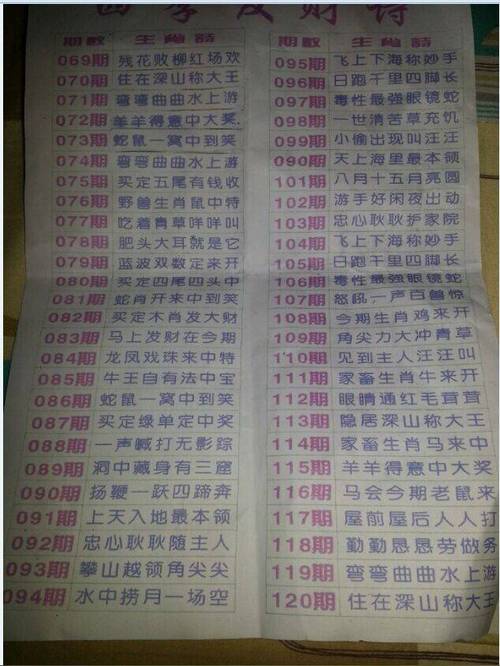 四季发财诗
期数 生肖诗
069期 残花败柳红场欢
070期 住在深山称大王
071期 弯弯曲曲水上游
072期 羊羊得意中大奖
073期 蛇鼠一窝中到笑
074期 弯弯曲曲水上游
075期 买定五尾有钱收
076期 野兽生肖鼠中特
077期 吃着青草咩咩叫
078期 肥头大耳就是它
079期 蓝波双数定来开
080期 买定四尾四头中
081期 蛇肖开来中到笑
082期 买定木肖发大财
083期 马上发财在今期
084期 龙凤戏珠来中特
085期 牛王自有法中宝
086期 蛇鼠一窝中到笑
087期 买定绿单定中奖
088期 一声喊打无影踪
089期 洞中藏身有三窟
090期 扬鞭一跃四蹄奔
091期 上天入地最本领
092期 忠心耿耿随主人
093期 攀山越领角尖尖
094期 水中捞月一场空
期数 生肖诗
095期 飞上下海称妙手
096期 日跑千里四脚长
097期 毒性最强眼镜蛇
098期 一世清苦草充饥
099期 小偷出现叫汪汪
090期 天上海里最本领
101期 八月十五月亮圆
102期 游手好闲夜出动
103期 忠心耿耿护家院
104期 飞上下海称妙手
105期 日跑千里四脚长
106期 毒性最强眼镜蛇
107期 怒吼一声百兽惊
108期 今期生肖鸡来开
109期 角尖力大冲青草
110期 见到主人汪汪叫
111期 家畜生肖牛来开
112期 眼睛通红毛茸茸
113期 隐居深山称大王
114期 家畜生肖马来中
115期 羊羊得意中大奖
116期 马会今期老鼠来
117期 屋前屋后人人打
118期 勤勤恳恳劳做务
119期 弯弯曲曲水上游
120期 住在深山称大王